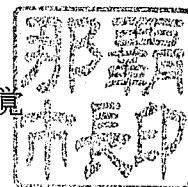 覚
那覇
市長印